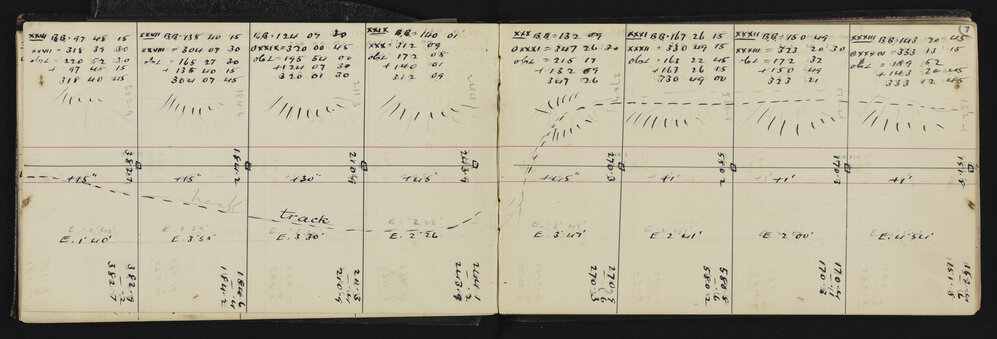 XXVI BB=97 48 15
XXVII = 318 39 30
obsd = 220 52 30
+ 97 48 15
318 40 45
382.7
+15"
E. 1° 40'
382.9
.2
382.7
XXVII BB=138 40 15
XXVIII = 304 07 30
obsd = 165 27 30
+ 138 40 15
304 07 45
184.2
+15"
E. 3° 50'
184.6
.4
184.2
BB=124 07 30
XXIX = 320 00 45
obsd = 195 54 00
+ 124 07 30
320 01 30
210.9
+30"
track
E. 3° 30'
211.3
.4
210.9
XXIX BB=140 01'
XXX = 312 09
obsd = 172 08
+ 140 01
312 09
243.9
+45"
E. 2° 26
244.1
.2
243.9
XXX BB=132 09
XXXI = 347 26 30
obsd = 215 17
+ 132 09
347 26
270.3
+45"
E. 3° 47'
270.9
6
270.3
XXXI BB=167 26 15
XXXII = 330 49 15
obsd = 163 22 45
+ 167 26 15
330 49 00
580.2
+1'
E 2° 41'
580.8
.6
580.2
BB=150 49
XXXIII = 323 20 30
obsd = 172 32
+ 150 49
323 21
170.3
+1'
E 2° 00'
170.4
170.3
XXXIII BB=143 20 45
= 333 13 15
obsd = 189 52
+ 143 20 45
333 12 45
151.8
+1'
E. 4° 54'
152.4
.6
151.8